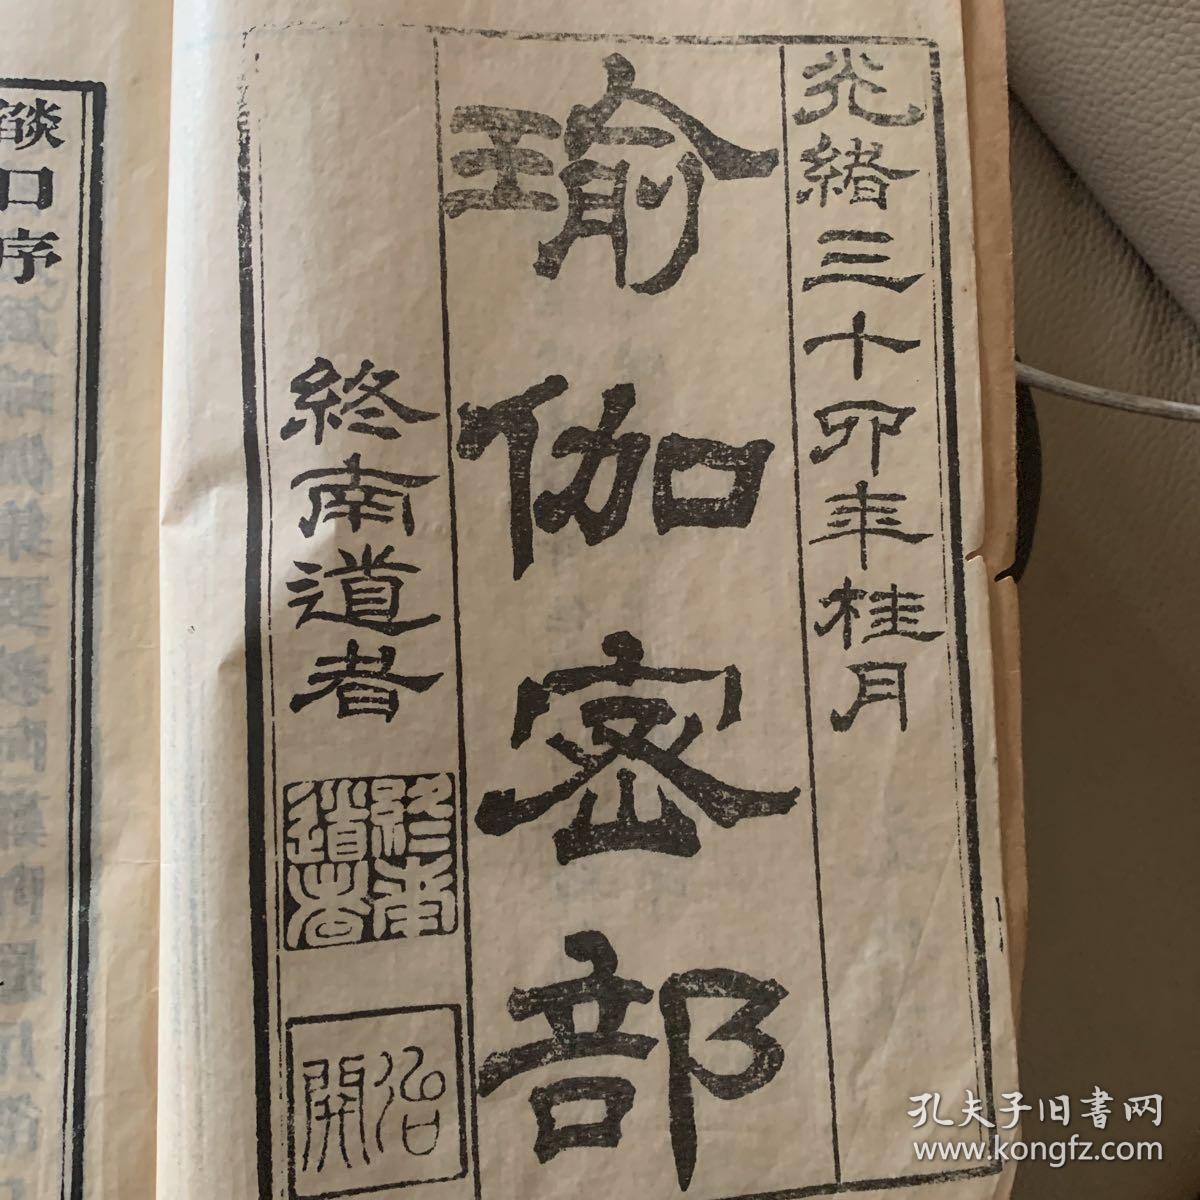 光緒三十卯年桂月
瑜伽密部
終南道者
終南道者
治開
燄口序
孔夫子旧書网
www.kongfz.com